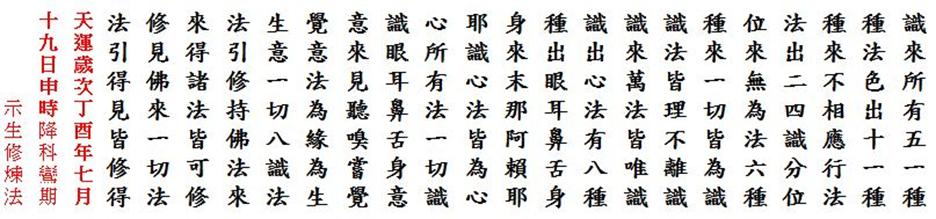 識來所有五一種
種法色出十一種
種來不相應行法
法出二四識分位
位來無為法六種
種來一切皆為識
識法皆理不離識
識來萬法皆唯識
識出心法有八種
種出眼耳鼻舌身
身來末那阿賴耶
耶識心法皆為心
心所有法一切識
識眼耳鼻舌身意
意來見聽嗅嘗覺
覺意法為緣為生
生意一切八識法
法引修持佛法來
來得諸法皆可修
修見佛來一切法
法引得見皆修得
天運歲次丁酉年七月
十九日申時降科鸞期
示生修煉法